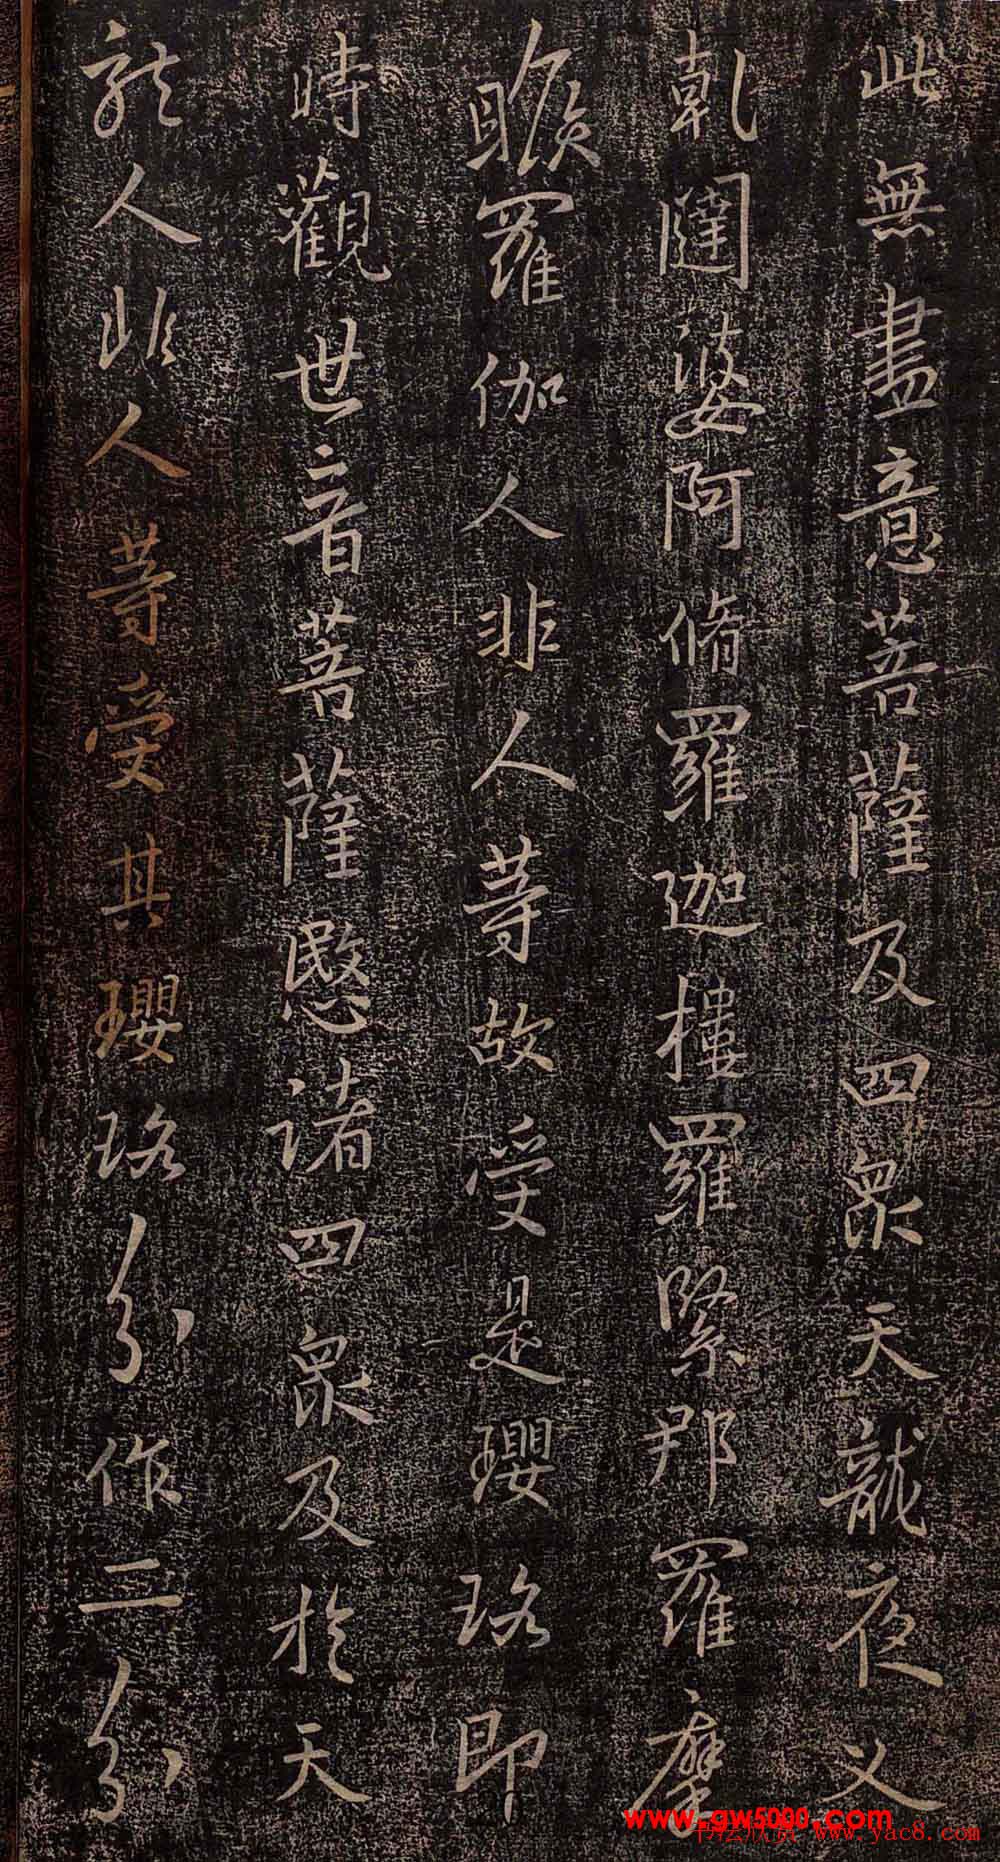 此無盡意菩薩及四眾天龍夜叉
乾闥婆阿脩羅迦樓羅緊那羅摩
睺羅伽人非人等故受是瓔珞即
時觀世音菩薩愍諸四眾及於天
龍人非人等受其瓔珞分作二分
www.gw5000.com
书法欣赏 www.yac8.com